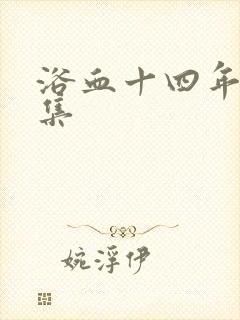 浴血十四年
集
婉浮伊